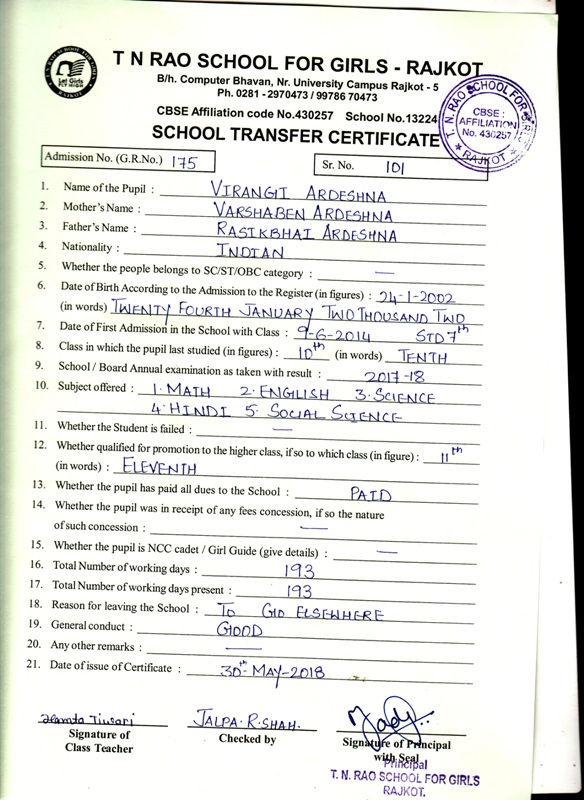 T N RAO SCHOOL FOR GIRLS - RAJKOT
B/h. Computer Bhavan, Nr. University Campus Rajkot - 5
Ph. 0281 - 2970473 / 99786 70473
CBSE Affiliation code No.430257 School No.13224
SCHOOL TRANSFER CERTIFICATE
Let Girls
FLY HIGH
T. N. RAO SCHOOL FOR GIRLS
CBSE
AFFILIATION
No. 430257
★ RAJKOT ★
Admission No. (G.R.No.) 175 Sr. No. 101
1. Name of the Pupil : VIRANGI ARDESHNA
2. Mother's Name : VARSHABEN ARDESHNA
3. Father's Name : RASIKBHAI ARDESHNA
4. Nationality : INDIAN
5. Whether the people belongs to SC/ST/OBC category : —
6. Date of Birth According to the Admission to the Register (in figures) : 24-1-2002
(in words) TWENTY FOURTH JANUARY TWO THOUSAND TWO
7. Date of First Admission in the School with Class : 9-6-2014 STD 7th
8. Class in which the pupil last studied (in figures) : 10th (in words) TENTH
9. School / Board Annual examination as taken with result : 2017-18
10. Subject offered : 1. MATH 2. ENGLISH 3. SCIENCE
4. HINDI 5. SOCIAL SCIENCE
11. Whether the Student is failed : —
12. Whether qualified for promotion to the higher class, if so to which class (in figure) : 11th
(in words) : ELEVENTH
13. Whether the pupil has paid all dues to the School : PAID
14. Whether the pupil was in receipt of any fees concession, if so the nature
of such concession : —
15. Whether the pupil is NCC cadet / Girl Guide (give details) : —
16. Total Number of working days : 193
17. Total Number of working days present : 193
18. Reason for leaving the School : TO GO ELSEWHERE
19. General conduct : GOOD
20. Any other remarks : —
21. Date of issue of Certificate : 30th MAY-2018
JALPA.R.SHAH.
Signature of Class Teacher
Checked by
Signature of Principal
with Seal
Principal
T. N. RAO SCHOOL FOR GIRLS
RAJKOT.